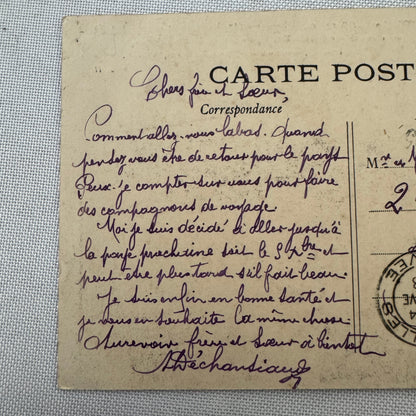 CARTE POST
Chers frère et Sœur,
Correspondance
Comment allez-vous labas. Quand
pensez vous être de retour pour le pays
Peux-je compter sur vous pour faire
des compagnons de voyage.
Moi je suis décidé à aller jusqu'à
la paye prochaine soit le 5 Xbre et
peut être plus tard s'il fait beau.
Je suis enfin en bonne santé et
je vous en souhaite la même chose
Aurevoir frère et Sœur à bientot
ADéchansiaud
Mr et
2